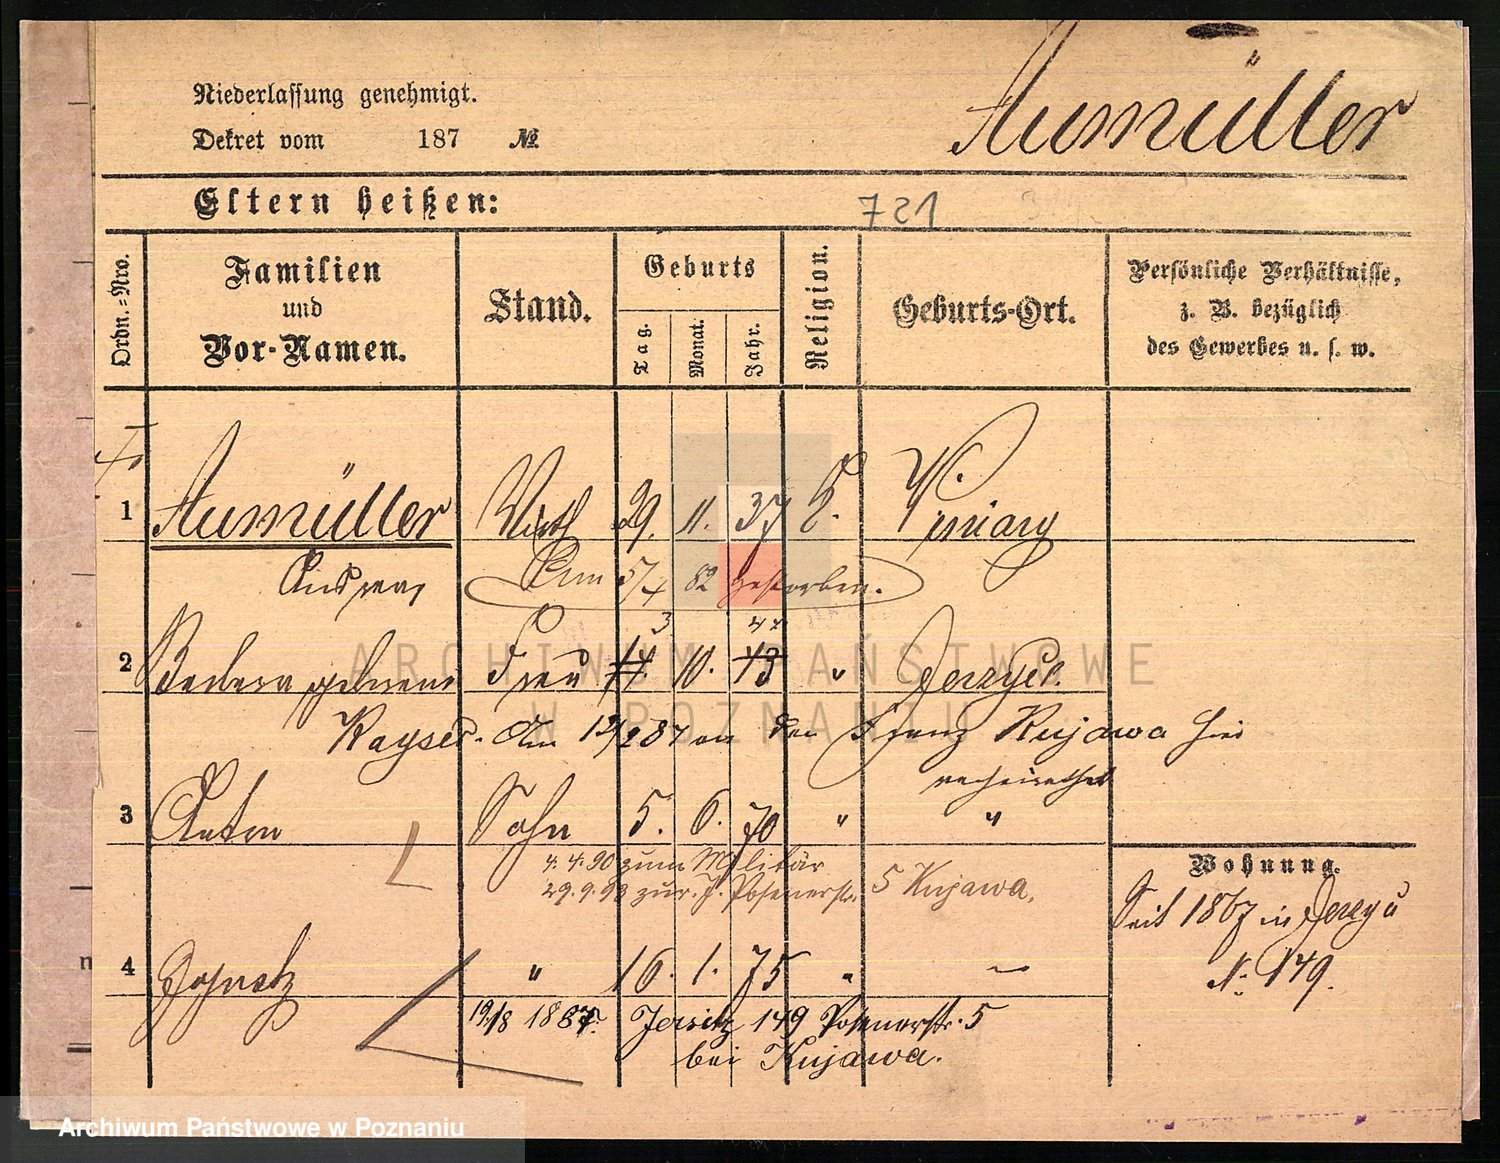 Niederlassung genehmigt.
Dekret vom 187 №
Aumüller
Eltern heißen:
721
Ordn.=Nro.
Familien
und
Vor-Namen.
Stand.
Geburts
Tag.
Monat.
Jahr.
Religion.
Geburts-Ort.
Persönliche Verhältnisse,
z. B. bezüglich
des Gewerbes u. s. w.
1 Aumüller Wirth 29. 11. 37 Winiary
Andreas Am 5/4 82 gestorben.
3 44
2 Barbara geborene Frau 14. 10. 43 " Jerzyce.
Kayser. Am 12/2 87 an den Franz Kujawa hier
verheirathet
3 Anton Sohn 5. 6. 70 " "
4.4.90 zum Militär
29.9.93 zur. J. Posenerstr. 5 Kujawa.
Wohnung.
Seit 1867 in Jerzyce
No. 149.
4 Ignatz " 16. 1. 75 "
19/8 1887. Jersitz 149 Posenerstr. 5
bei Kujawa.
ARCHIWUM PAŃSTWOWE
W POZNANIU
Archiwum Państwowe w Poznaniu